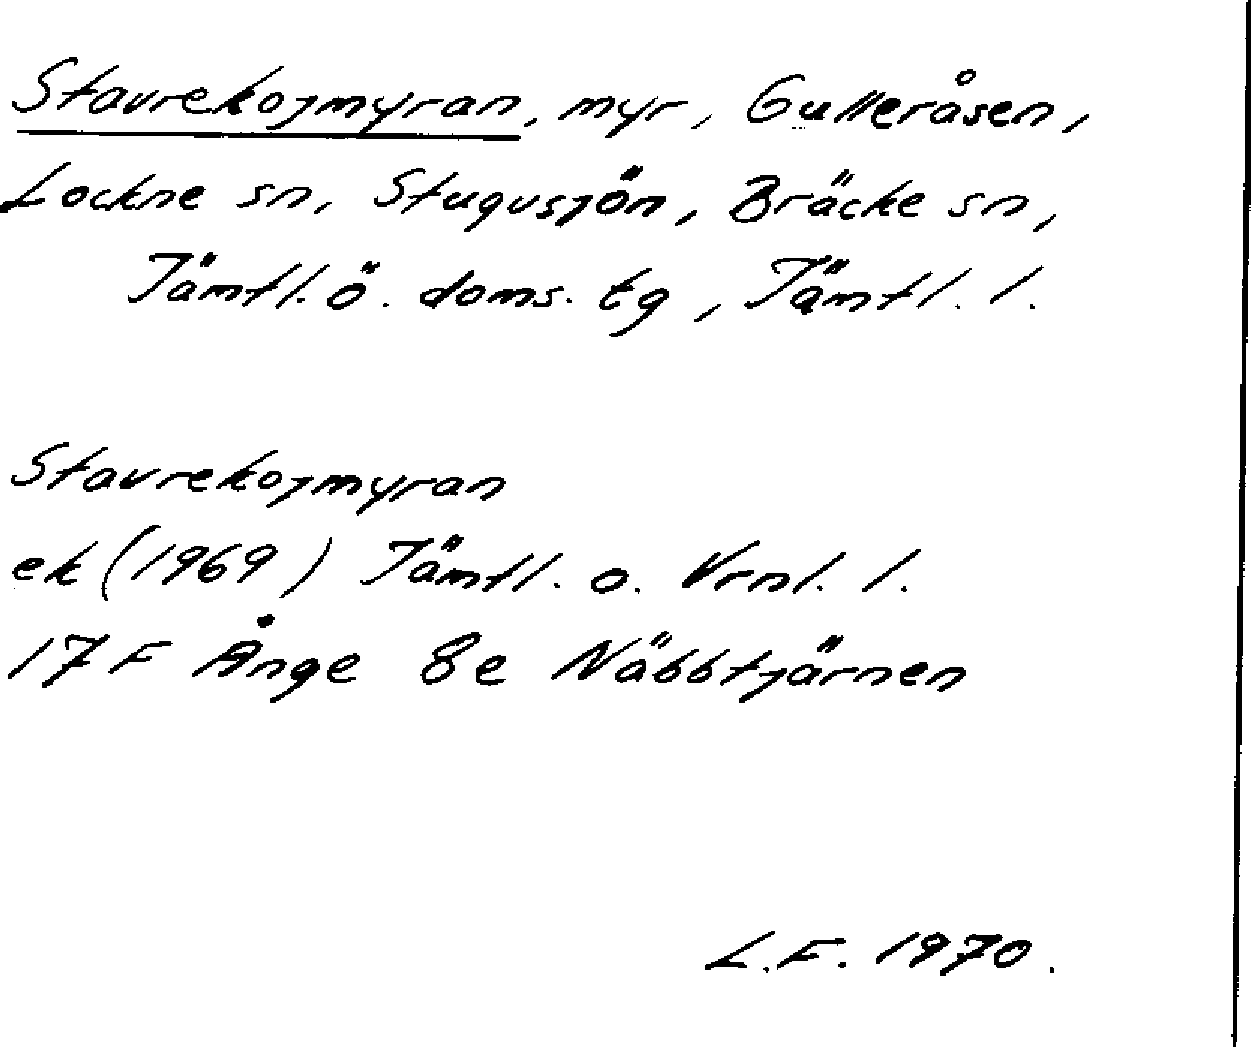 Stavrekojmyran, myr, Gulleråsen,
Lockne sn, Stugusjön, Bräcke sn,
Jämtl. ö. doms. tg, Jämtl. l.
Stavrekojmyran
ek (1969) Jämtl. o. Vrnl. l.
17 F Ånge 8e Näbbtjärnen
L.F. 1970.